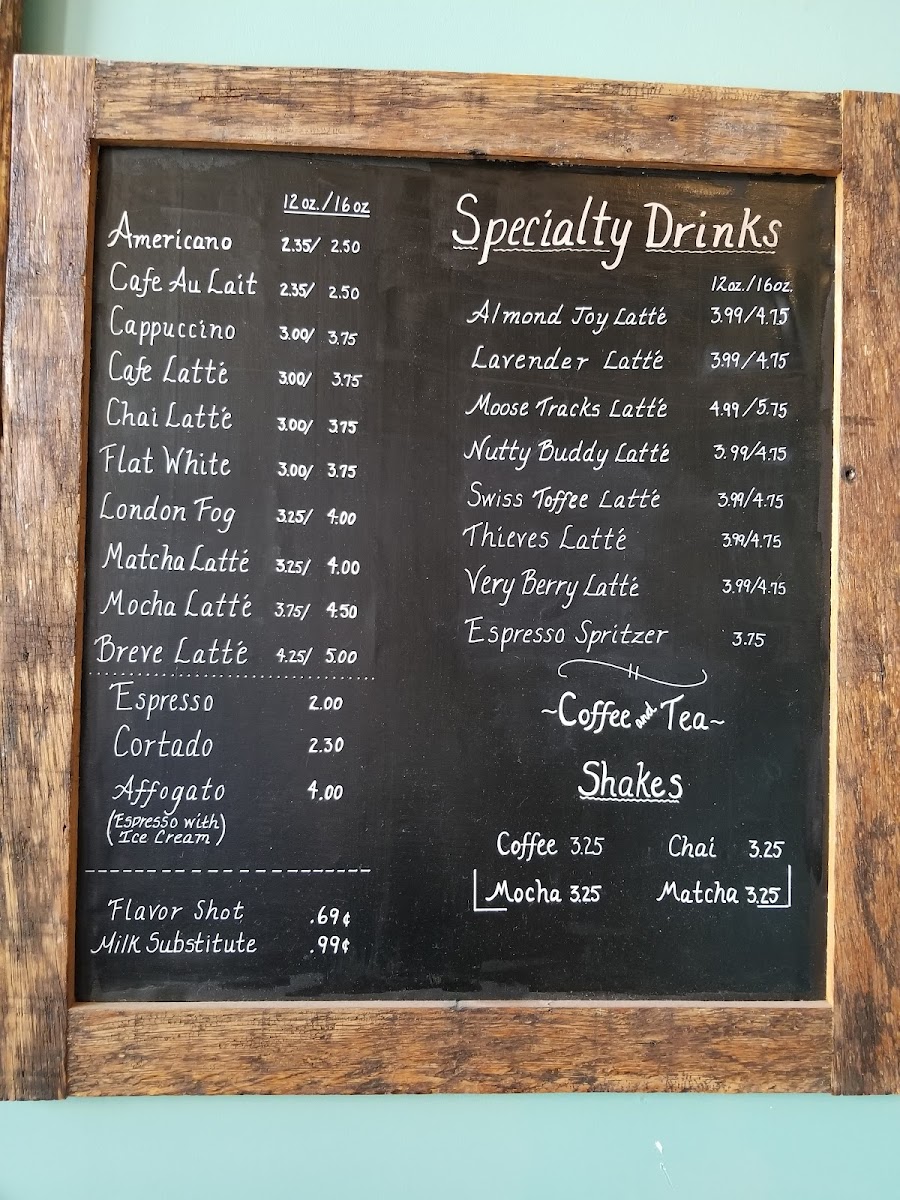 12oz./16oz
Americano 2.35/ 2.50
Cafe Au Lait 2.35/ 2.50
Cappuccino 3.00/ 3.75
Cafe Latté 3.00/ 3.75
Chai Latté 3.00/ 3.75
Flat White 3.00/ 3.75
London Fog 3.25/ 4.00
Matcha Latté 3.25/ 4.00
Mocha Latté 3.75/ 4.50
Breve Latté 4.25/ 5.00
Espresso 2.00
Cortado 2.30
Affogato 4.00
(Espresso with
Ice Cream)
Flavor Shot .69¢
Milk Substitute .99¢
Specialty Drinks
12oz./16oz.
Almond Joy Latté 3.99/4.75
Lavender Latté 3.99/4.75
Moose Tracks Latté 4.99/5.75
Nutty Buddy Latté 3.99/4.75
Swiss Toffee Latté 3.99/4.75
Thieves Latté 3.99/4.75
Very Berry Latté 3.99/4.75
Espresso Spritzer 3.75
~Coffee and Tea~
Shakes
Coffee 3.25 Chai 3.25
Mocha 3.25 Matcha 3.25